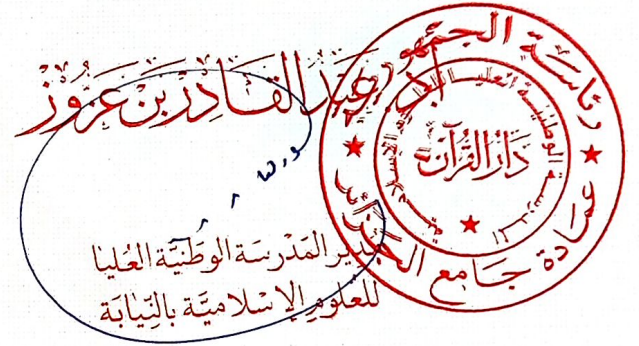 أ.د. عَبْدُ القَادِرْ بَن عَزُّوزْ
مدير المَدْرسَة الوطَنيَّة العُليا
للعُلومِ الإسْلاميَّة بالنِّيَابَة
رئاسة الجمهورية
عمادة جامع الجزائر
المدرسة الوطنية العليا للعلوم الإسلامية
دَارُ القُرْآن